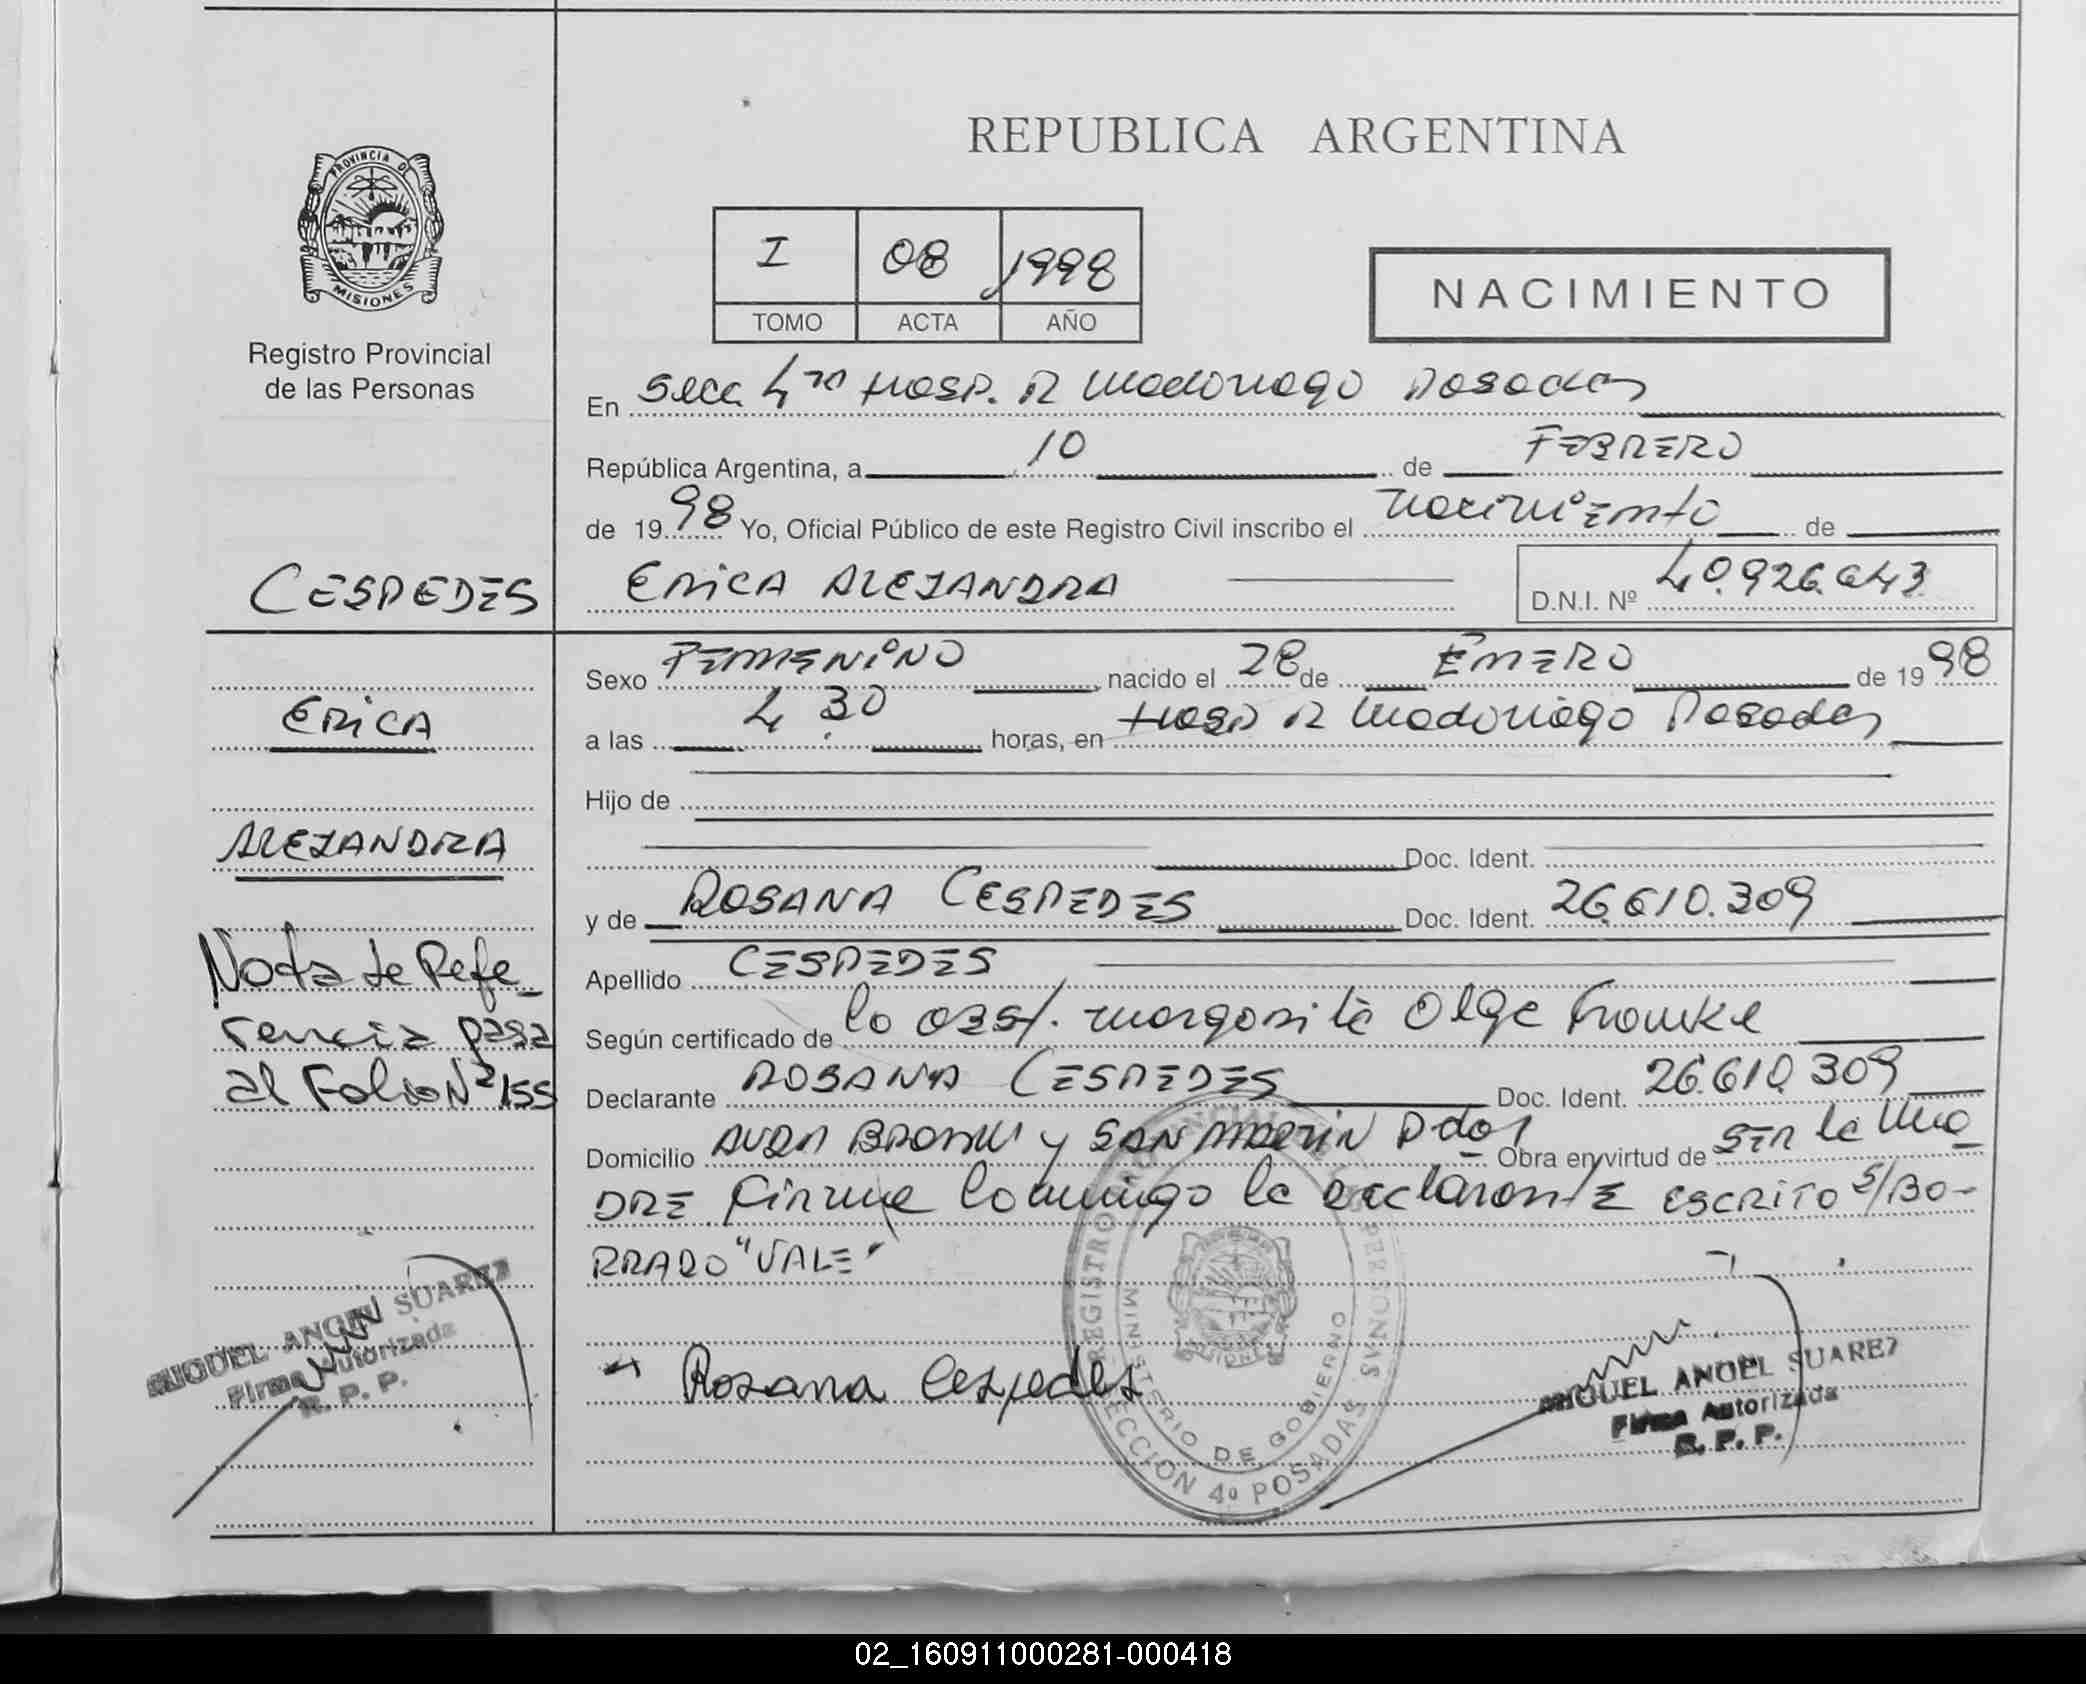 REPUBLICA ARGENTINA
PROVINCIA DE
MISIONES
Registro Provincial
de las Personas
I 08 1998
TOMO ACTA AÑO
NACIMIENTO
En Secc 4ta Hosp. R Madariaga Posadas
República Argentina, a 10 de FEBRERO
de 1998 Yo, Oficial Público de este Registro Civil inscribo el nacimiento de
CESPEDES
ERICA ALEJANDRA
D.N.I. Nº 40.926.643
Sexo FEMENINO nacido el 28 de ENERO de 1998
ERICA
a las 4.30 horas, en Hosp R Madariaga Posadas
Hijo de
ALEJANDRA
Doc. Ident.
y de ROSANA CESPEDES Doc. Ident. 26.610.309
Nota de Refe-
rencia pasa
al Folio Nº 155
Apellido CESPEDES
Según certificado de la OBST. Margarita Olga
Declarante ROSANA CESPEDES Doc. Ident. 26.610.309
Domicilio y SAN MARTIN Pdas Obra en virtud de SER la MA
DRE Firma conmigo la declarante ESCRITO S/BO-
RRADO "VALE"
Rosana Cespedes
REGISTRO PROVINCIAL DE LAS PERSONAS
MINISTERIO DE GOBIERNO
SECCION 4º POSADAS
MISIONES
MIGUEL ANGEL SUAREZ
Firma Autorizada
R. P. P.
MIGUEL ANGEL SUAREZ
Firma Autorizada
R. P. P.
02_160911000281-000418